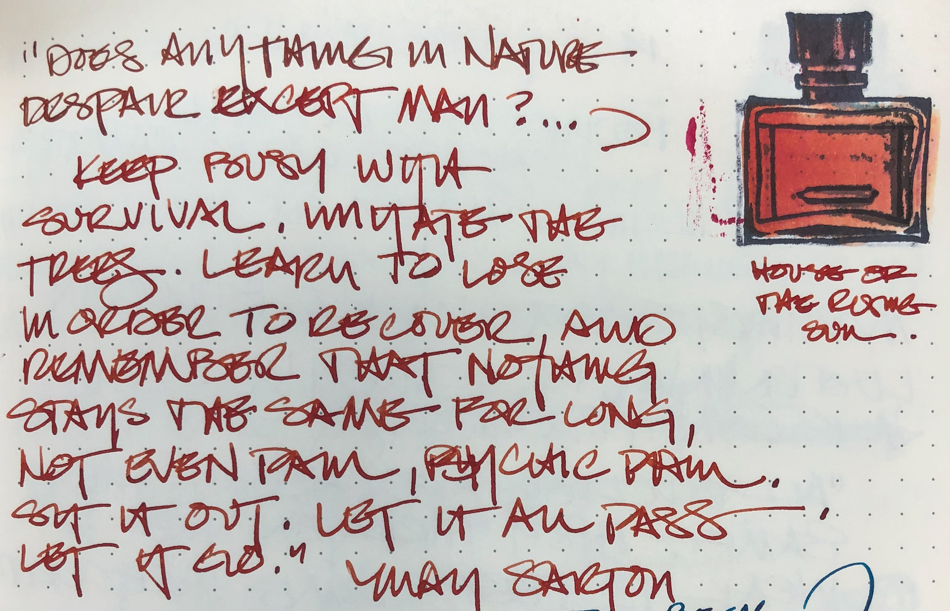 "DOES ANYTHING IN NATURE
DESPAIR EXCEPT MAN?...
KEEP BUSY WITH
SURVIVAL. IMITATE THE
TREES. LEARN TO LOSE
IN ORDER TO RECOVER, AND
REMEMBER THAT NOTHING
STAYS THE SAME FOR LONG,
NOT EVEN PAIN, PSYCHIC PAIN.
SIT IT OUT. LET IT ALL PASS.
LET IT GO."
MAY SARTON
HOUSE OF
THE RISING
SUN.